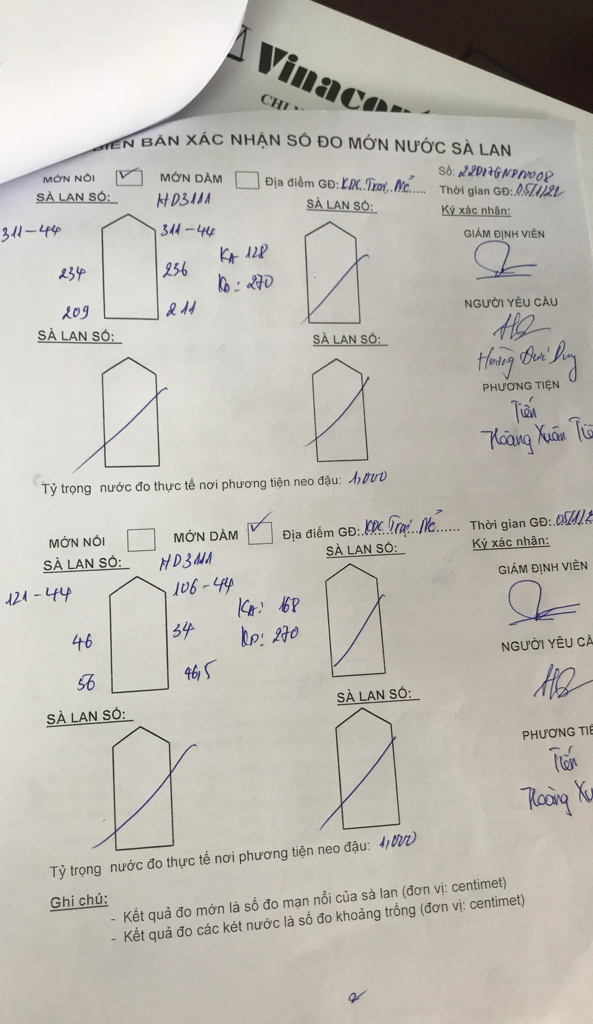 Vinacom
CHI N
BIÊN BẢN XÁC NHẬN SỐ ĐO MỚN NƯỚC SÀ LAN
MỚN NỔI MỚN DẦM Địa điểm GĐ: KDC Trại Mế..... Số: 22D17GNDN008
Thời gian GĐ: 05/1/22
SÀ LAN SỐ: HD3111 SÀ LAN SỐ: Ký xác nhận:
311-44 311-44
GIÁM ĐỊNH VIÊN
234 236 KA 128
KD: 270
209 211
NGƯỜI YÊU CẦU
SÀ LAN SỐ: SÀ LAN SỐ:
Hoàng Đức Duy
PHƯƠNG TIỆN
Tiến
Hoàng Xuân Tiế
Tỷ trọng nước đo thực tế nơi phương tiện neo đậu: 1,000
MỚN NỔI MỚN DẦM Địa điểm GĐ: KDC Trại Mế...... Thời gian GĐ: 05/1/2
SÀ LAN SỐ: HD3111 SÀ LAN SỐ: Ký xác nhận:
121-44 106-44
GIÁM ĐỊNH VIÊN
KA: 168
46 34 KD: 270
56 46,5
NGƯỜI YÊU CẦ
SÀ LAN SỐ: SÀ LAN SỐ:
PHƯƠNG TIỆ
Tiến
Hoàng Xu
Tỷ trọng nước đo thực tế nơi phương tiện neo đậu: 1,000
Ghi chú:
- Kết quả đo mớn là số đo mạn nổi của sà lan (đơn vị: centimet)
- Kết quả đo các két nước là số đo khoảng trống (đơn vị: centimet)